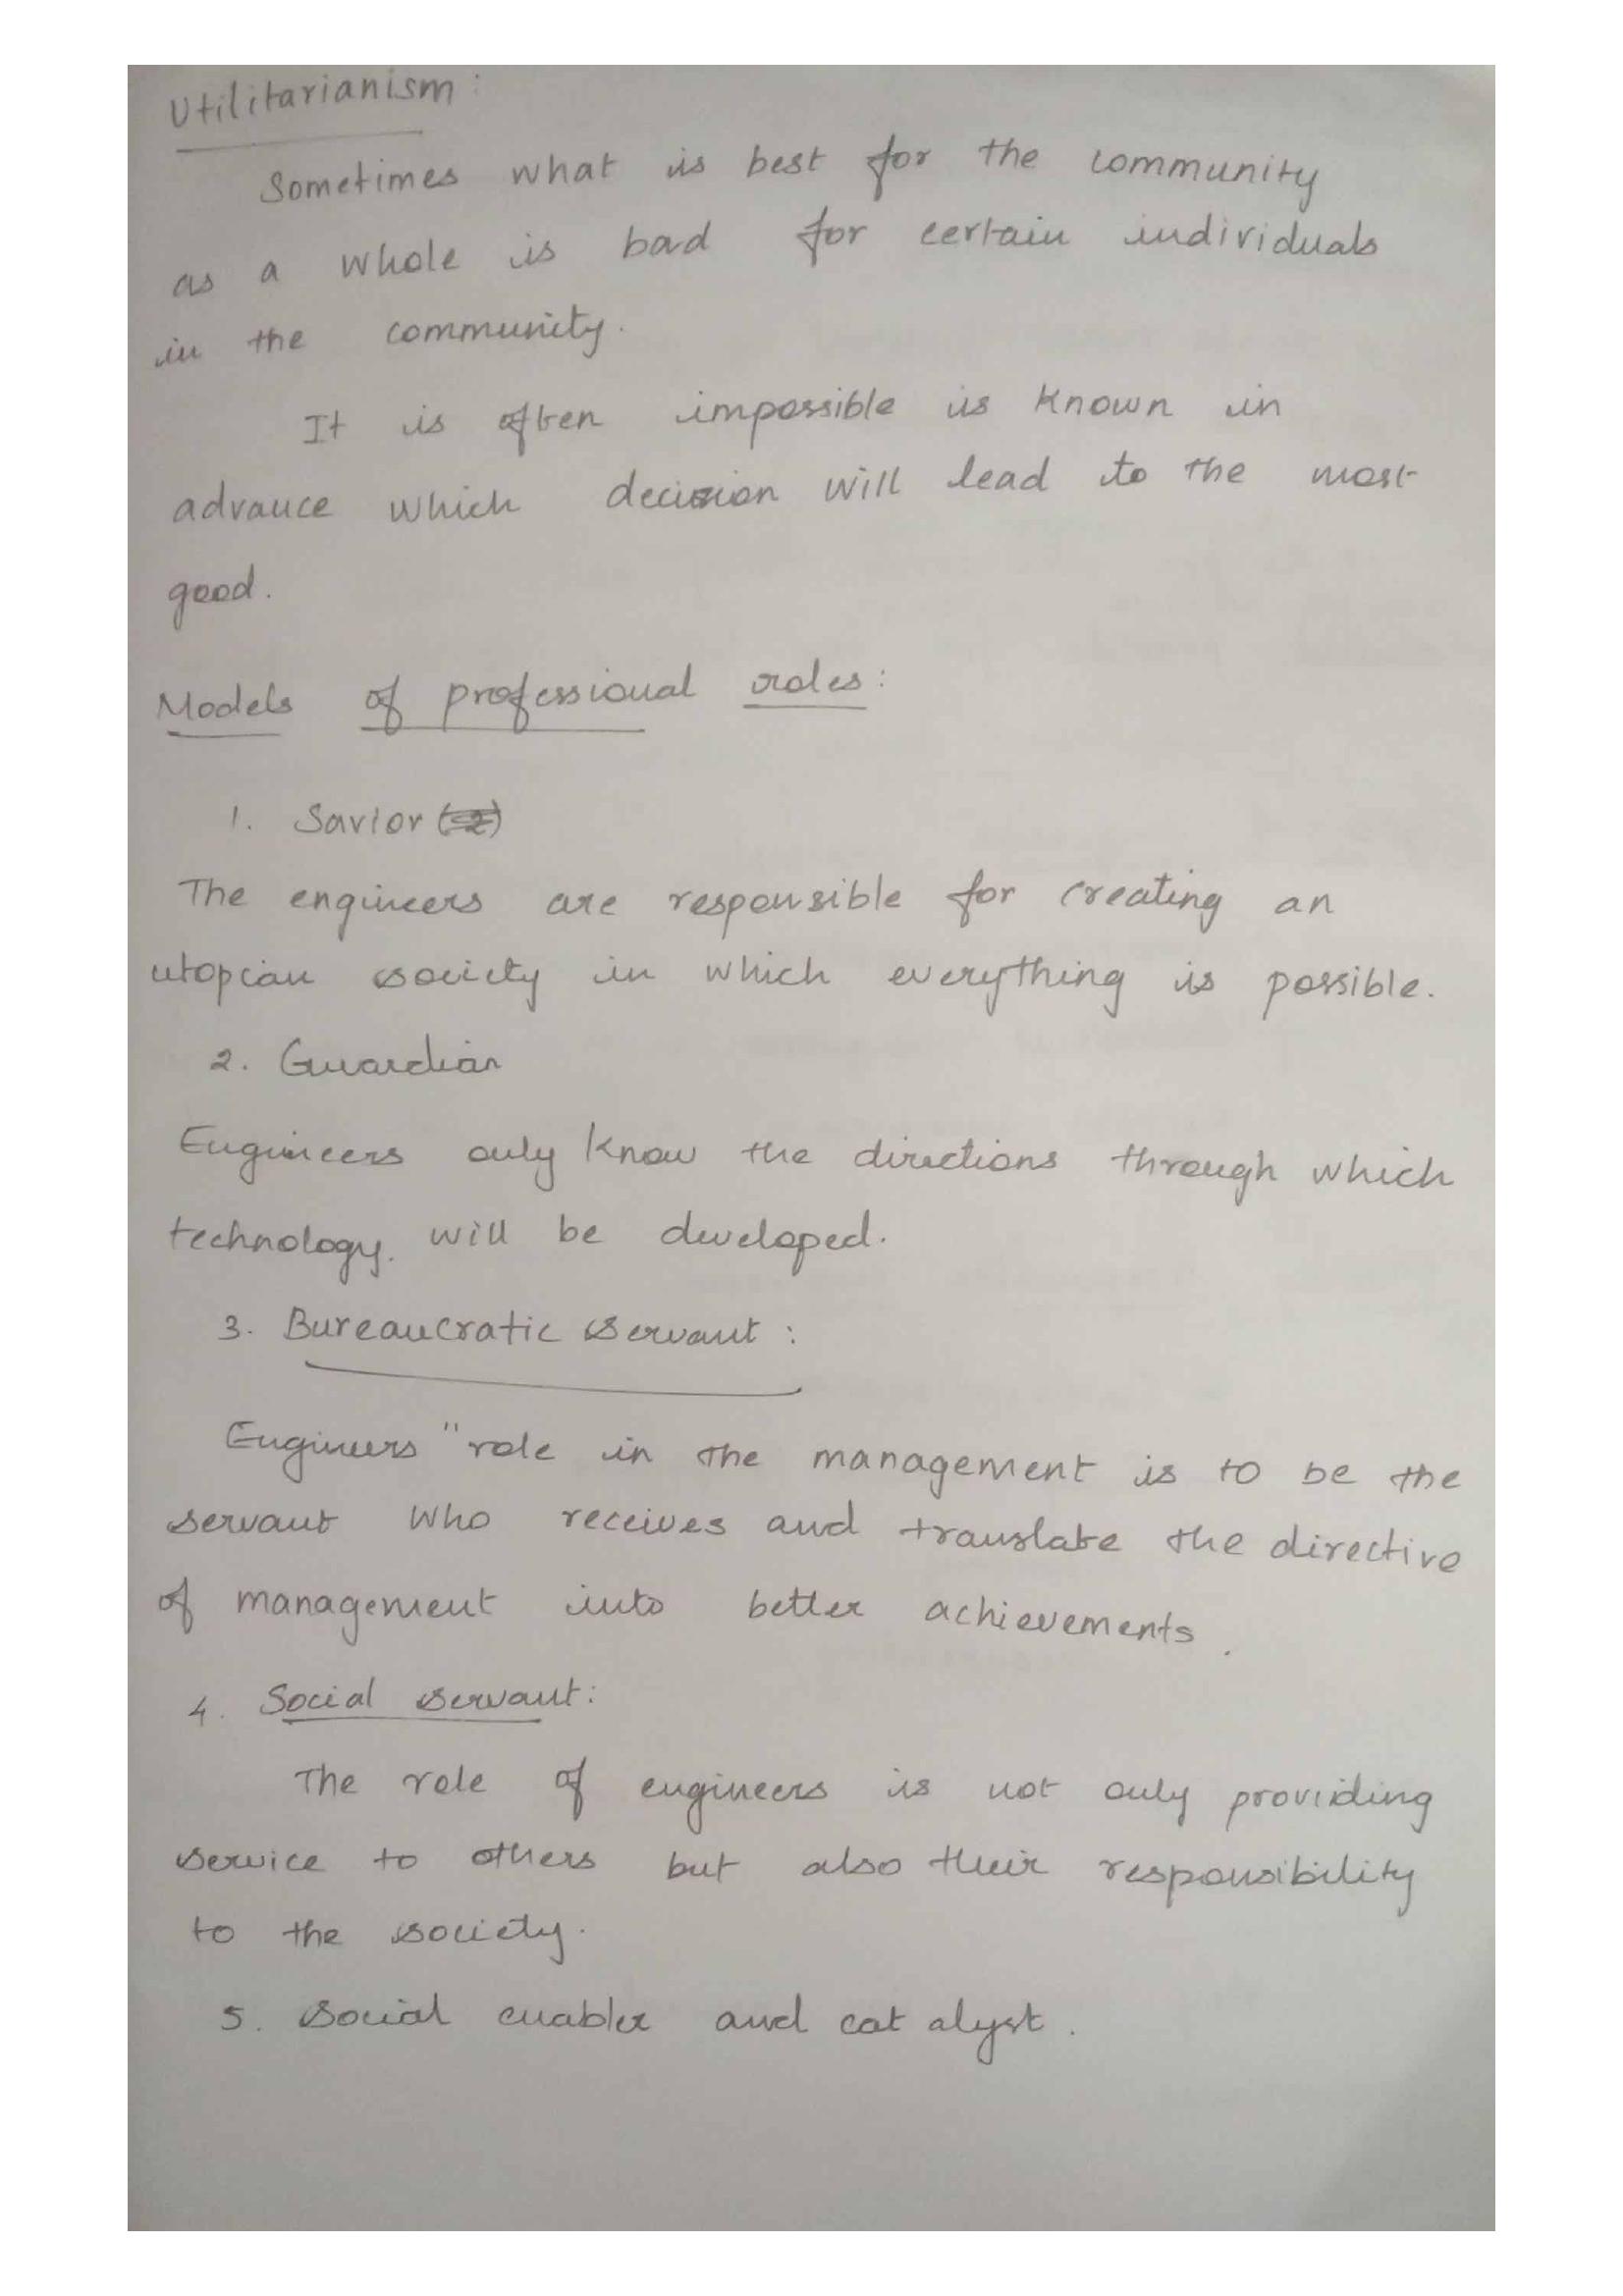 Utilitarianism :
Sometimes what is best for the community
as a whole is bad for certain individuals
in the community.
It is often impossible is known in
advance which decision will lead to the most
good.
Models of professional roles :
1. Savior
The engineers are responsible for creating an
utopian society in which everything is possible.
2. Guardian
Engineers only know the directions through which
technology. will be developed.
3. Bureaucratic servant :
Engineers " role in the management is to be the
servant who receives and translate the directive
of management into better achievements .
4. Social servant :
The role of engineers is not only providing
service to others but also their responsibility
to the society.
5. Social enabler and cat alyst .